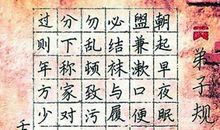 弟子规
朝起早夜眠
盥兼漱口便
必结袜与履
勿乱顿致污
分下称家对
过则年方少